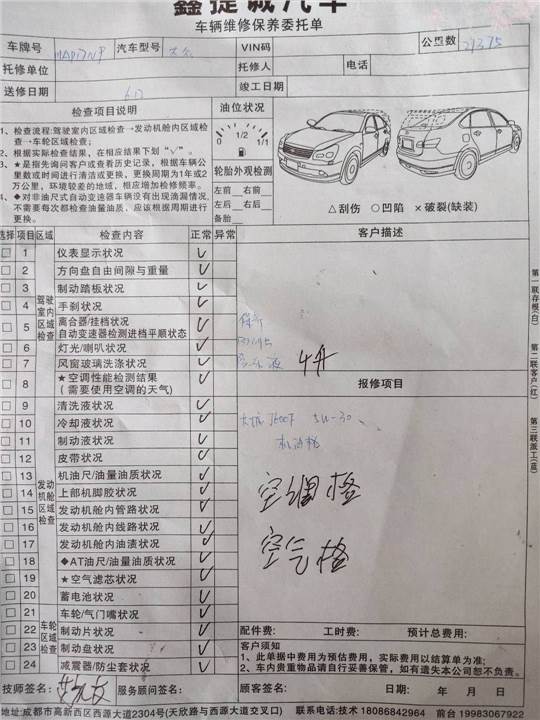 鑫捷诚汽车
车辆维修保养委托单
车牌号 汽车型号 VIN码 公里数
托修单位 托修人 电话
送修日期 竣工日期
检查项目说明
1、检查流程:驾驶室内区域检查→发动机舱内区域检查→车轮区域检查;
2、根据实际检查结果,在相应结果下划“√”。
3、★是指先询问客户或查看历史记录,根据车辆公里数或时间进行清洁或更换,更换周期为1年或2万公里,环境较差的地域,相应增加检修频率。
4、◆对非油尺式自动变速器车辆没有出现滴漏情况,不需要每次都检查油量油质,应该根据周期进行更换。
油位状况
0 1/2 1/1
轮胎外观检测
左前 右前
左后 右后
备胎
△刮伤 ○凹陷 ×破裂(缺装)
选择 项目 区域 检查内容 正常 异常 客户描述
驾驶室内区域检查
1 仪表显示状况
2 方向盘自由间隙与重量
3 制动踏板状况
4 手刹状况
5 离合器/挂档状况
自动变速器检测进档平顺状态
6 灯光/喇叭状况
7 风窗玻璃洗涤状况
8 ★空调性能检测结果
(需要使用空调的天气)
4升
报修项目
发动机舱区域检查
9 清洗液状况
10 冷却液状况
11 制动液状况
12 皮带状况
13 机油尺/油量油质状况
14 上部机脚胶状况
15 发动机舱内管路状况
16 发动机舱内线路状况
17 发动机舱内油渍状况
18 ◆AT油尺/油量油质状况
19 ★空气滤芯状况
20 蓄电池状况
5W-30
机油格
空调格
空气格
车轮区域检查
21 车轮/气门嘴状况
22 制动片状况
23 制动盘状况
24 减震器/防尘套状况
配件费: 工时费: 预计总费用:
客户须知
1、此单据中费用为预估费用,实际费用以结算单为准;
2、车内贵重物品请自行妥善保管,如有遗失本公司恕不负责。
技师签名: 服务顾问签名: 顾客签名: 日期: 年 月 日
地址:成都市高新西区西源大道2304号(天欣路与西源大道交叉口) 联系电话:技术 18086842964 前台 19983067922
第一联存根(白)
第二联客户(红)
第三联派工(蓝)